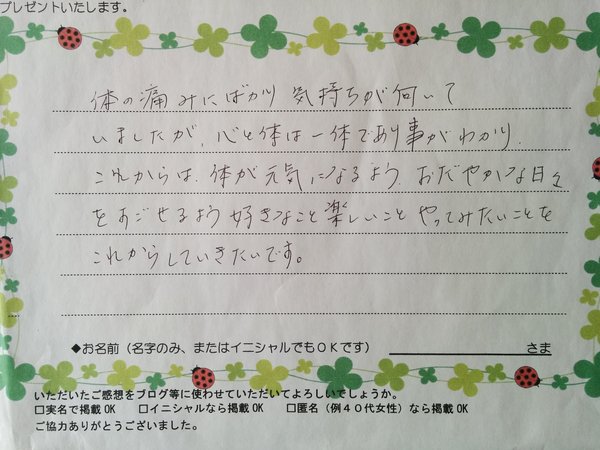 プレゼントいたします。
体の痛みにばかり 気持ちが向いて
いましたが、心と体は一体であり事がわかり、
これからは、体が元気になるよう、おだやかな日々
をすごせるよう 好きなこと 楽しいこと やってみたいことを
これからしていきたいです。
◆お名前（名字のみ、またはイニシャルでもＯＫです） さま
いただいたご感想をブログ等に使わせていただいてよろしいでしょうか。
□実名で掲載 OK □イニシャルなら掲載 OK □匿名（例４０代女性）なら掲載 OK
ご協力ありがとうございました。